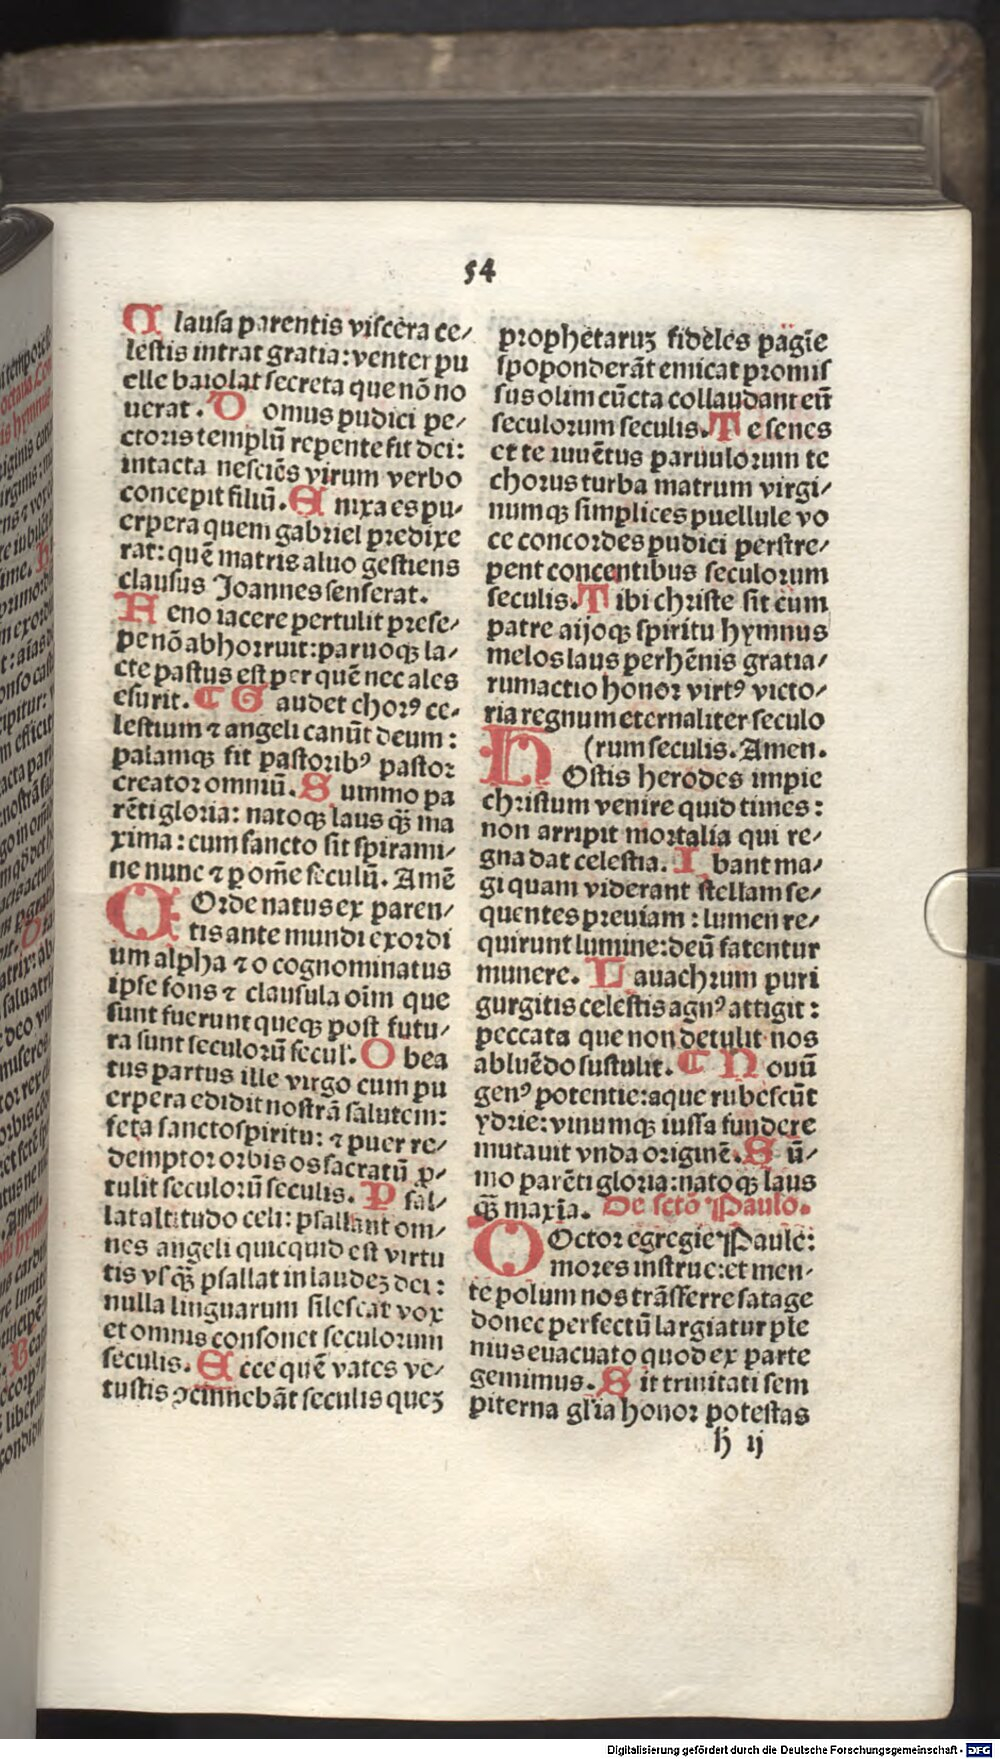 54
C lausa parentis viscera ce/
lestis intrat gratia: venter pu
elle baiolat secreta que nō no
uerat. D omus pudici pe/
ctoris templū repente fit dei:
intacta nesciēs virum verbo
concepit filiū. E nixa es pu/
erpera quem gabriel predixe
rat: quē matris aluo gestiens
clausus Joannes senserat.
F eno iacere pertulit prese/
pe nō abhorruit: paruoqꝫ la/
cte pastus est per quē nec ales
esurit. ¶ G audet chorꝰ ce/
lestium ⁊ angeli canūt deum:
palamqꝫ fit pastoribꝰ pastor
creator omniū. S ummo pa
rēti gloria: natoqꝫ laus qꝫ̄ ma
xima: cum sancto sit spirami/
ne nunc ⁊ p om̄e seculū. Amē
C Orde natus ex paren/
tis ante mundi exordi
um alpha ⁊ o cognominatus
ipse fons ⁊ clausula oīm que
sunt fuerunt queqꝫ post futu/
ra sunt seculorū secul'. O bea
tus partus ille virgo cum pu
erpera edidit nostrā salutem:
feta sancto spiritu: ⁊ puer re/
demptor orbis os sacratū ꝓ/
tulit seculorū seculis. P sal/
lat altitudo celi: psallant om/
nes angeli quicquid est virtu
tis vsqꝫ̄ psallat in laudeꝫ dei:
nulla linguarum silescat vox
et omnis consonet seculorum
seculis. E cce quē vates ve/
tustis ꝯcinnebāt seculis queꝫ
prophetaruꝫ fideles pagīe
spoponderāt emicat promis
sus olim cūcta collaudant eū
seculorum seculis. T e senes
et te iuuētus paruulorum te
chorus turba matrum virgi/
numqꝫ simplices puellule vo
ce concordes pudici perstre/
pent concentibus seculorum
seculis. T ibi christe sit cum
patre aijoqꝫ spiritu hymnus
melos laus perhēnis gratia/
rum actio honor virtꝰ victo/
ria regnum eternaliter seculo
(rum seculis. Amen.
H Ostis herodes impie
christum venire quid times:
non arripit mortalia qui re/
gna dat celestia. I bant ma/
gi quam viderant stellam se/
quentes preuiam: lumen re/
quirunt lumine: deū fatentur
munere. L auachrum puri
gurgitis celestis agnꝰ attigit:
peccata que non detulit nos
abluēdo sustulit. ¶ N ouū
genꝰ potentie: aque rubescūt
ydrie: vinumqꝫ iussa fundere
mutauit vnda originē. S ū/
mo parēti gloria: natoqꝫ laus
qꝫ̄ maxīa. De sctō Paulo.
D Octor egregie Paule:
mores instrue: et men/
te polum nos trāsferre satage
donec perfectū largiatur ple
mus euacuato quod ex parte
gemimus. S it trinitati sem
piterna gl'ia honor potestas
h ij
Digitalisierung gefördert durch die Deutsche Forschungsgemeinschaft - DFG